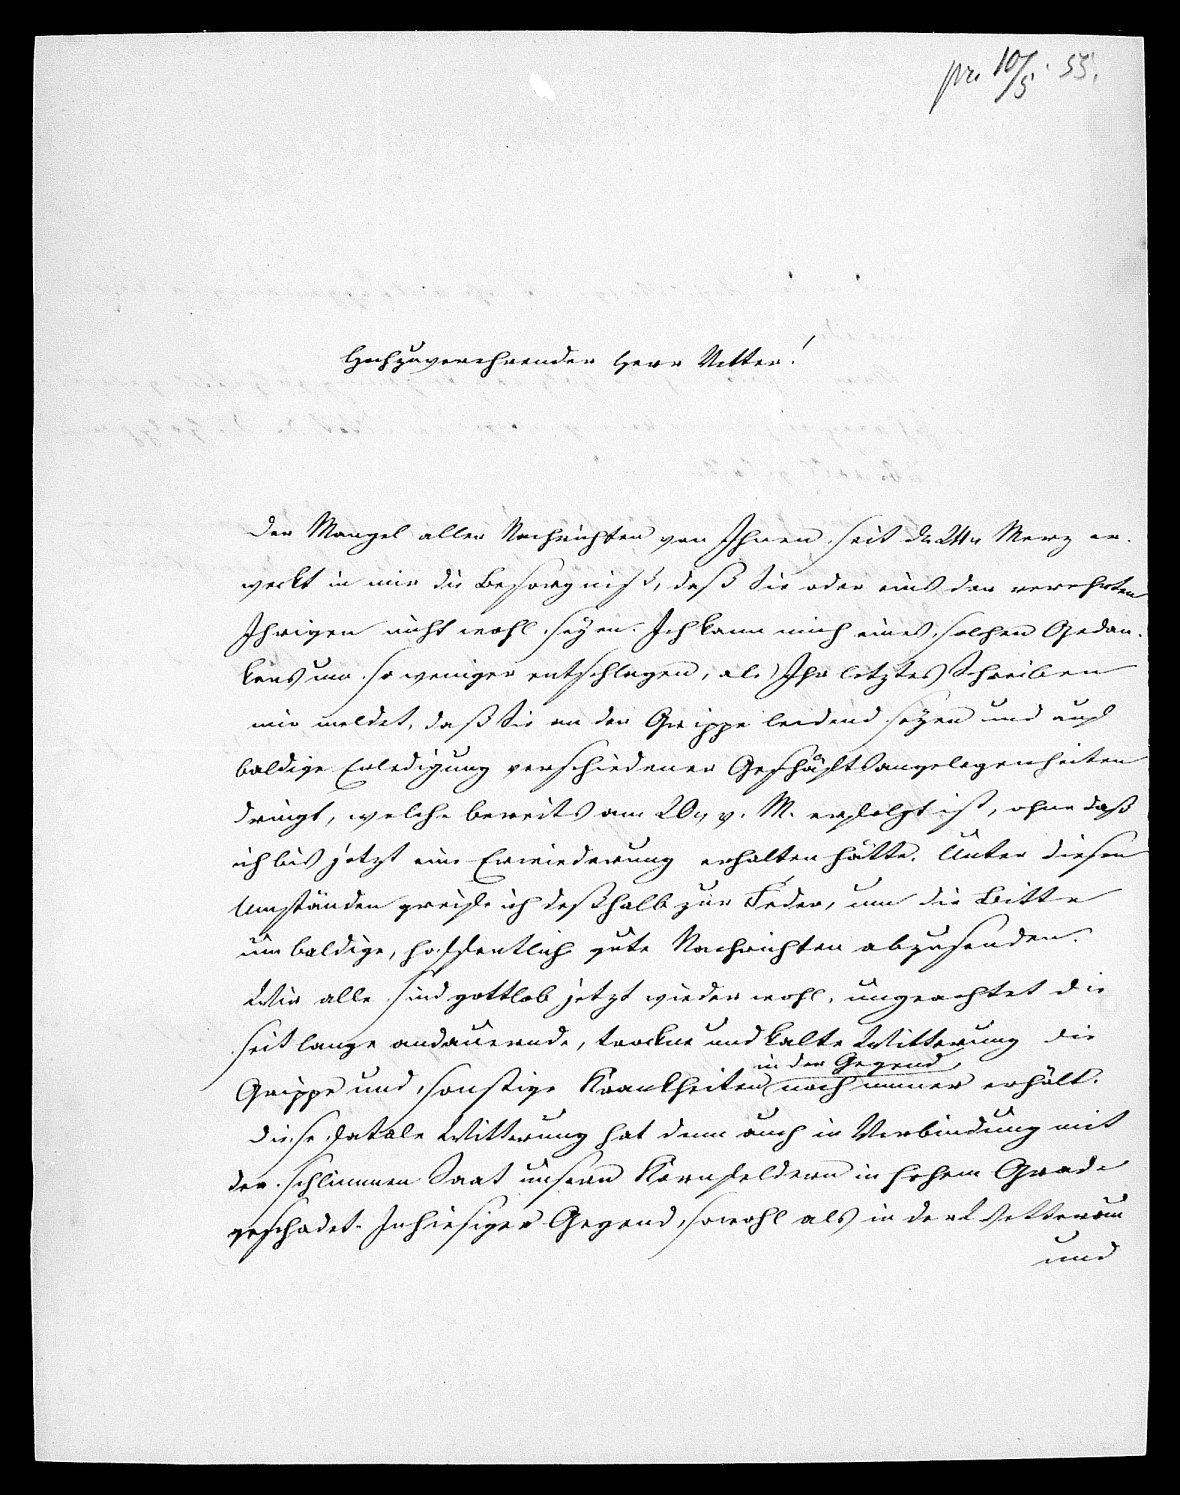 pr. 10/5. 55.
Hochzuverehrender Herr Vetter!
Der Mangel aller Nachrichten von Ihnen seit d. 24n Merz er-
weckt in mir die Besorgniß, daß Sie oder eins der verehrten
Ihrigen nicht wohl seyen. Ich kann mich eines solchen Gedan-
kens um so weniger entschlagen, als Ihr letztes Schreiben
mir meldet, daß Sie an der Grippe leidend seyen und auf
baldige Erledigung verschiedener Geschäftsangelegenheiten
dringt, welche bereits am 20n v. M. erfolgt ist, ohne daß
ich bis jetzt eine Erwiederung erhalten hätte. Unter diesen
Umständen greife ich deßhalb zur Feder, um die Bitte
um baldige, hoffentlich gute Nachrichten abzusenden.
Wir alle sind gottlob jetzt wieder wohl, ungeachtet die
seit lange andauernde, trockne und kalte Witterung die
Grippe und sonstige Krankheiten in der Gegend noch immer erhält.
Diese fatale Witterung hat denn auch in Verbindung mit
der schlimmen Saat unsern Kornfeldern in hohem Grade
geschadet. In hiesiger Gegend, sowohl als in der Wetterau
und